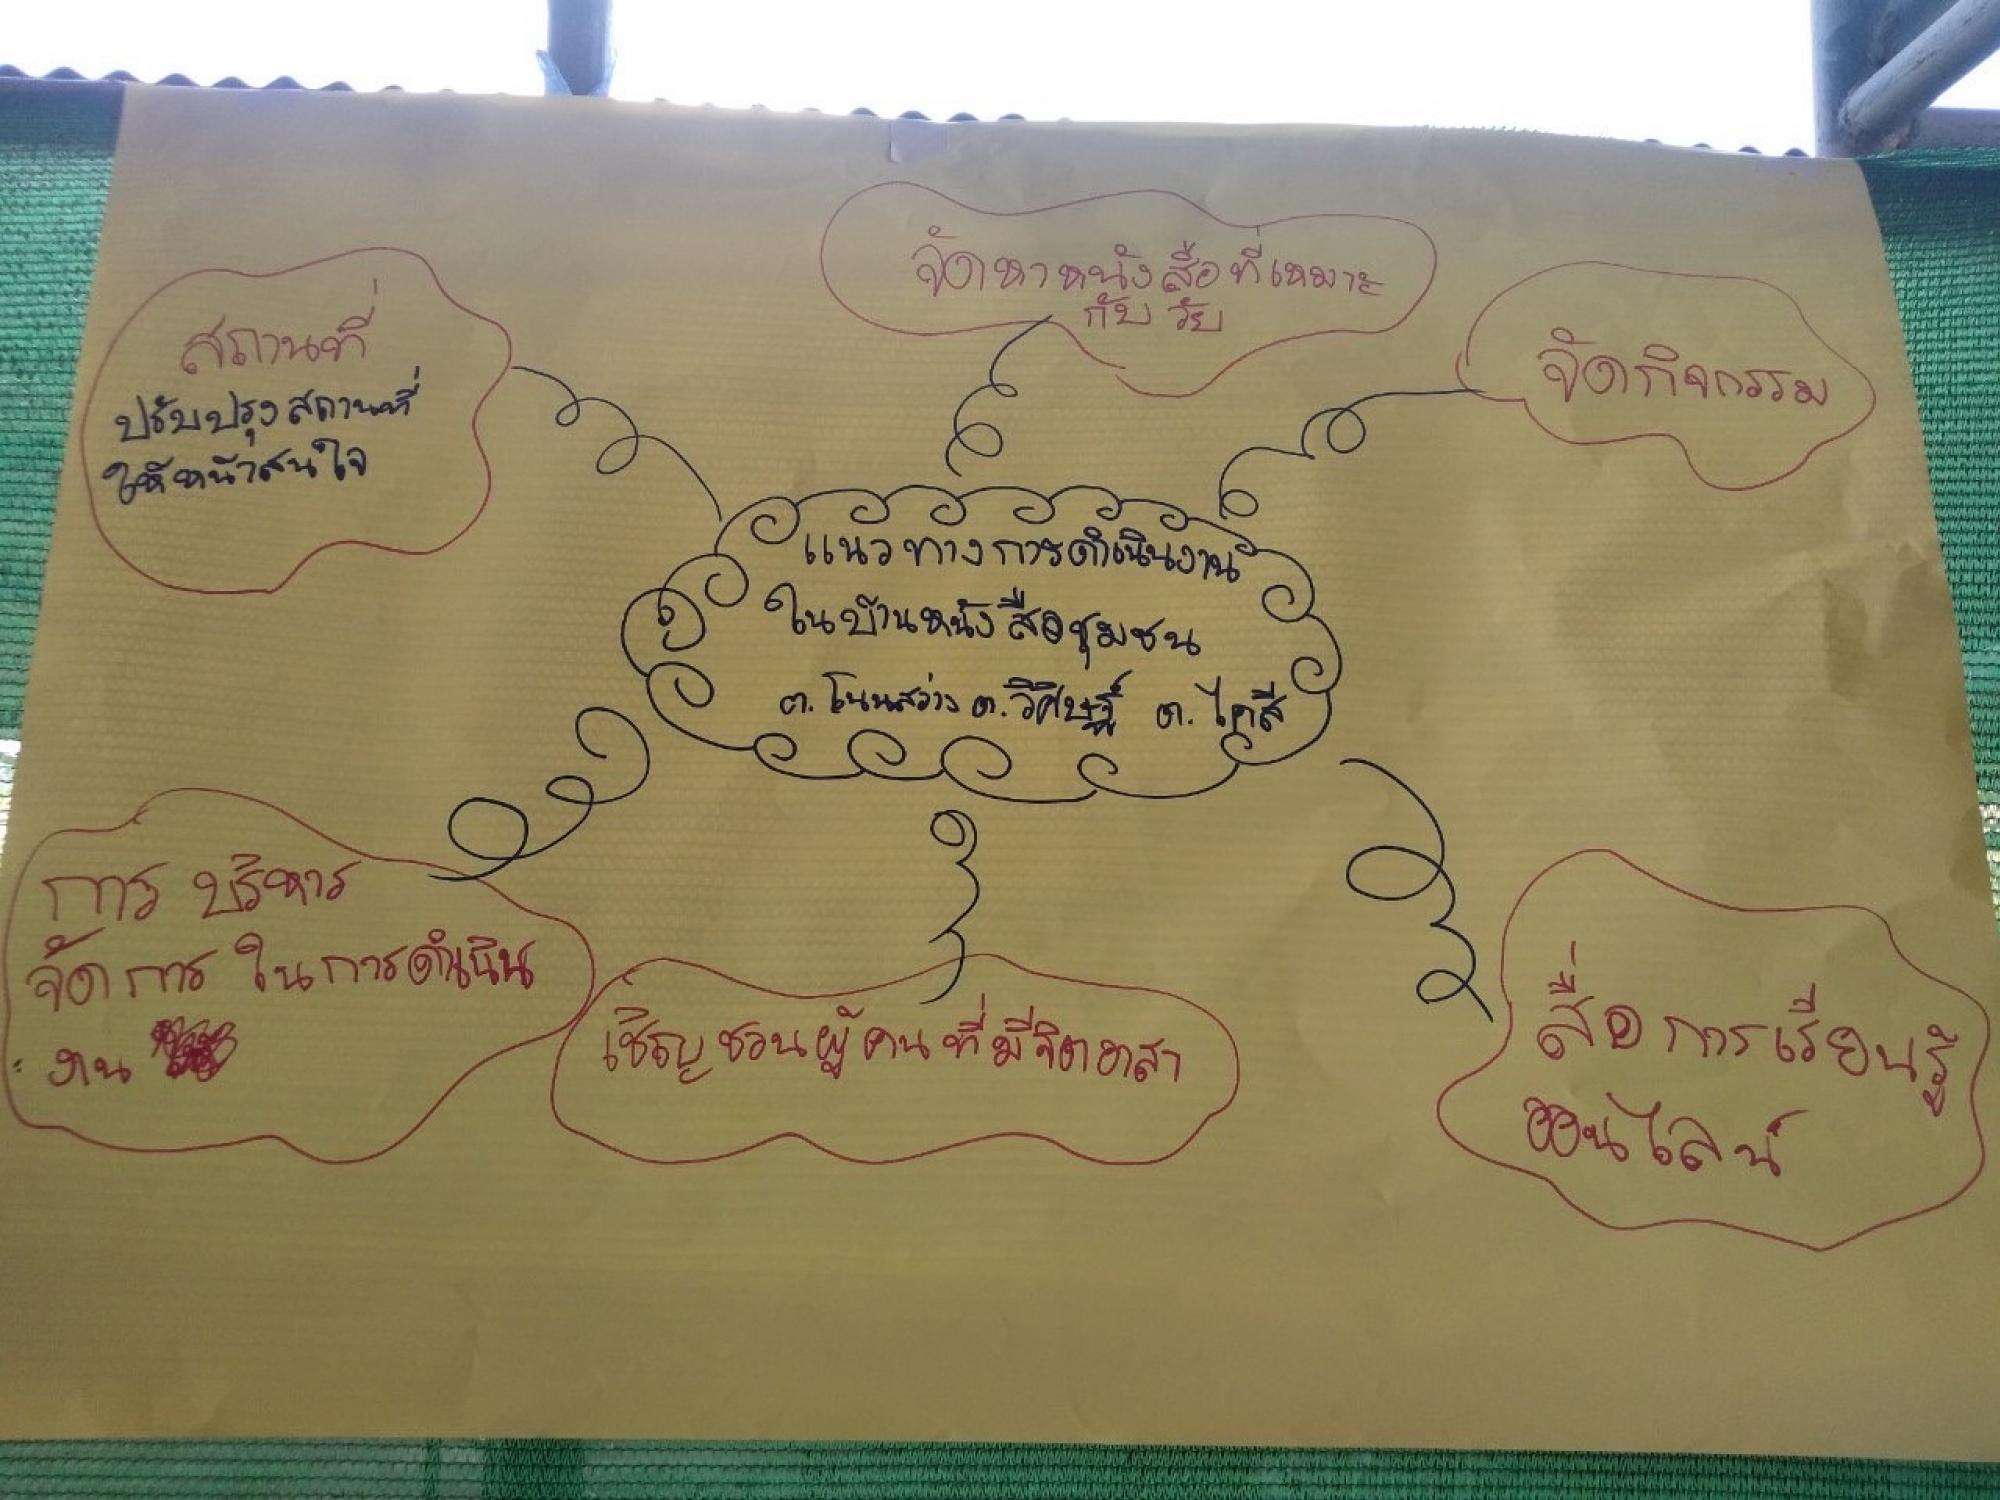 จัดหาหนังสือที่เหมาะ
กับวัย
สถานที่
ปรับปรุงสถานที่
ให้หน้าสนใจ
จัดกิจกรรม
แนวทางการดำเนินงาน
ในบ้านหนังสือชุมชน
ต.โนนสว่าง ต.วิศิษฐ์ ต.ไคสี
การบริหาร
จัดการในการดำเนิน
งาน
เชิญชวนผู้คนที่มีจิตอาสา
สื่อการเรียนรู้
ออนไลน์